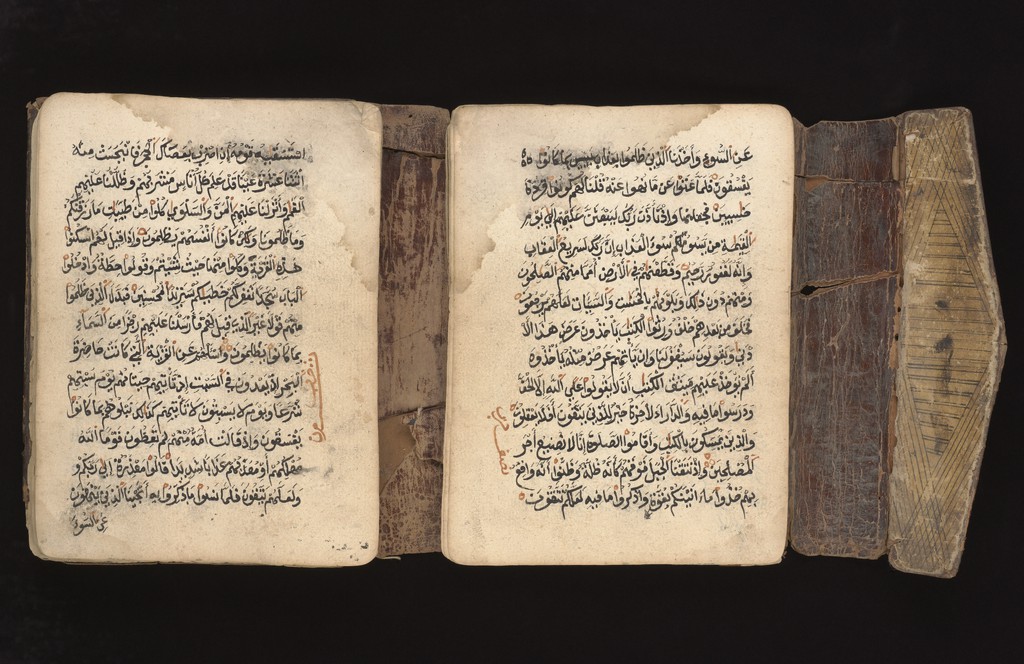 استسقيه قومه أن اضرب بعصاك الحجر فانبجست منه
اثنتا عشرة عينا قد علم كل أناس مشربهم وظللنا عليهم
الغمم وأنزلنا عليهم المن والسلوى كلوا من طيبات ما رزقنكم
وما ظلمونا ولكن كانوا أنفسهم يظلمون وإذ قيل لهم اسكنوا
هذه القرية وكلوا منها حيث شئتم وقولوا حطة وادخلوا
الباب سجدا نغفر لكم خطيئتكم سنزيد المحسنين فبدل الذين ظلموا
منهم قولا غير الذي قيل لهم فأرسلنا عليهم رجزا من السماء
بما كانوا يظلمون واسألهم عن القرية التي كانت حاضرة
البحر إذ يعدون في السبت إذ تأتيهم حيتانهم يوم سبتهم
شرعا ويوم لا يسبتون لا تأتيهم كذلك نبلوهم بما كانوا
يفسقون وإذ قالت أمة منهم لم تعظون قوما الله
مهلكهم أو معذبهم عذابا شديدا قالوا معذرة إلى ربكم
ولعلهم يتقون فلما نسوا ما ذكروا به أنجينا الذين ينهون
عن السوء
عن السوء وأخذنا الذين ظلموا بعذاب بئيس بما كانوا
يفسقون فلما عتوا عن ما نهوا عنه قلنا لهم كونوا قردة
خاسئين وإذ تأذن ربك ليبعثن عليهم إلى يوم
القيمة من يسومهم سوء العذاب إن ربك لسريع العقاب
وإنه لغفور رحيم وقطعنهم في الأرض أمما منهم الصلحون
ومنهم دون ذلك وبلونهم بالحسنت والسيئات لعلهم يرجعون
فخلف من بعدهم خلف ورثوا الكتب يأخذون عرض هذا الأ
دنى ويقولون سيغفر لنا وإن يأتهم عرض مثله يأخذوه
ألم يؤخذ عليهم ميثق الكتب أن لا يقولوا على الله إلا الحق
ودرسوا ما فيه والدار الآخرة خير للذين يتقون أفلا يعقلون
والذين يمسكون بالكتب وأقاموا الصلوة إنا لا نضيع أجر
المصلحين وإذ نتقنا الجبل فوقهم كأنه ظلة وظنوا أنه واقع
بهم خذوا ما اتينكم بقوة واذكروا ما فيه لعلكم تتقون